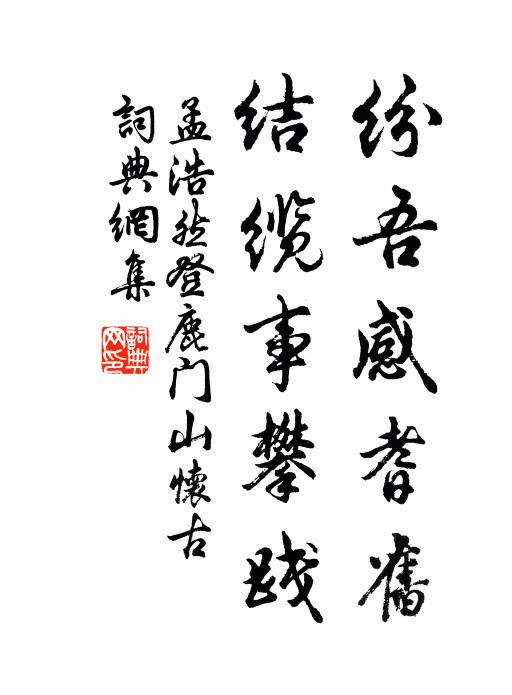 纷吾感耆舊
结缆事攀践
孟浩然登鹿门山懷古
詞典網集
詞典网印